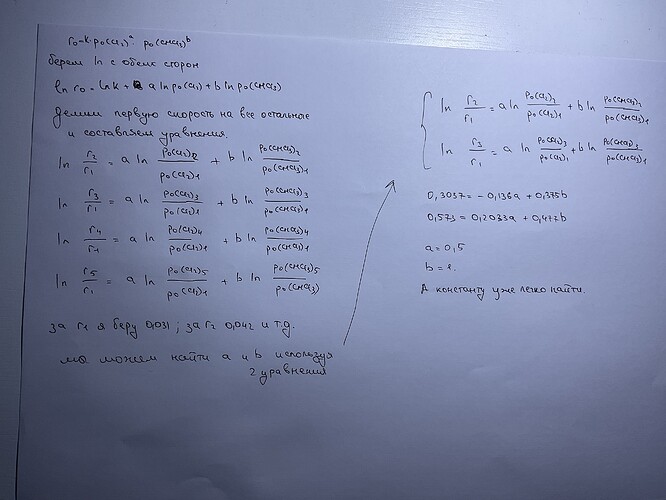 r₀=k·p₀(Cl₂)ᵃ· p₀(CHCl₃)ᵇ
берем ln с обеих сторон
ln r₀ = ln k + a ln p₀(Cl₂) + b ln p₀(CHCl₃)
Делим первую скорость на все остальные
и составляем уравнения.
ln r₂/r₁ = a ln p₀(Cl₂)₂/p₀(Cl₂)₁ + b ln p₀(CHCl₃)₂/p₀(CHCl₃)₁
ln r₃/r₁ = a ln p₀(Cl₂)₃/p₀(Cl₂)₁ + b ln p₀(CHCl₃)₃/p₀(CHCl₃)₁
ln r₄/r₁ = a ln p₀(Cl₂)₄/p₀(Cl₂)₁ + b ln p₀(CHCl₃)₄/p₀(CHCl₃)₁
ln r₅/r₁ = a ln p₀(Cl₂)₅/p₀(Cl₂)₁ + b ln p₀(CHCl₃)₅/p₀(CHCl₃)
за r₁ я беру 0,031 ; за r₂ 0,042 и т.д.
мы можем найти a и b используя
2 уравнения
ln r₂/r₁ = a ln p₀(Cl₂)₂/p₀(Cl₂)₁ + b ln p₀(CHCl₃)₂/p₀(CHCl₃)₁
ln r₃/r₁ = a ln p₀(Cl₂)₃/p₀(Cl₂)₁ + b ln p₀(CHCl₃)₃/p₀(CHCl₃)₁
0,3037 = - 0,136a + 0,375b
0,573 = 0,2033a + 0,477b
a = 0,5
b = 1.
А константу уже легко найти.